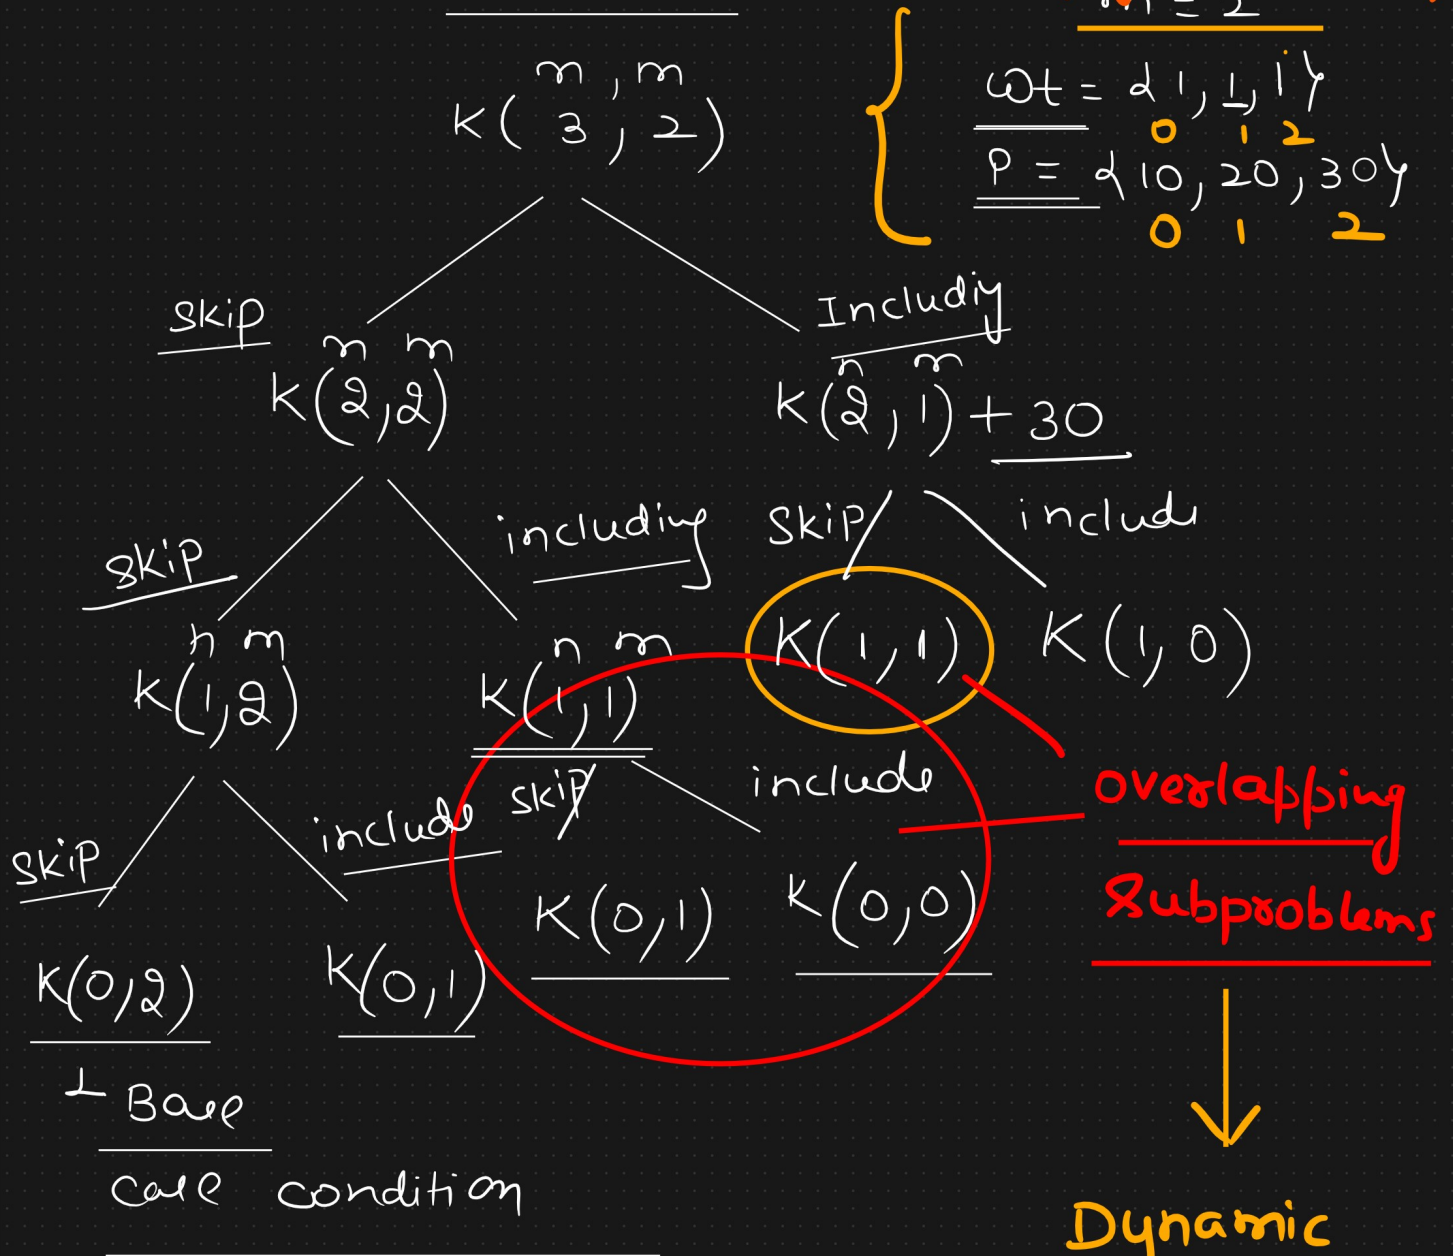 m = 2
wt = {1, 1, 1}
0 1 2
P = {10, 20, 30}
0 1 2
n, m
K(3, 2)
skip
Including
n m
K(2,2)
n m
K(2,1) + 30
skip
including
skip
include
n m
K(1,2)
n m
K(1,1)
K(1,1)
K(1,0)
skip
include
skip
include
overlapping
subproblems
K(0,2)
K(0,1)
K(0,1)
K(0,0)
Base
case condition
Dynamic